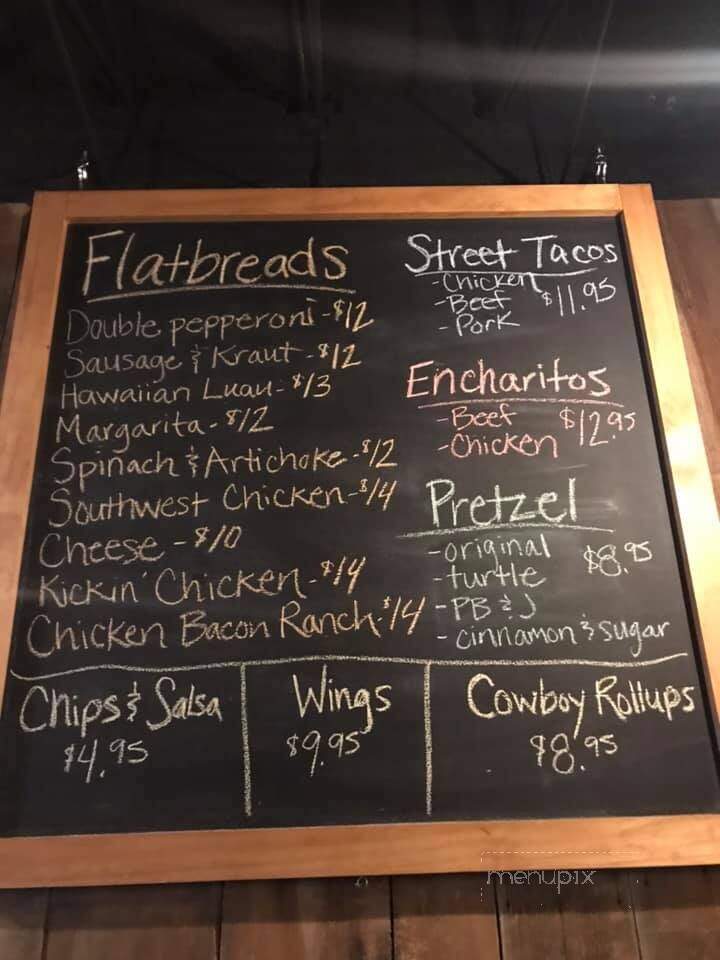 Flatbreads
Double pepperoni - $12
Sausage & Kraut - $12
Hawaiian Luau - $13
Margarita - $12
Spinach & Artichoke - $12
Southwest Chicken - $14
Cheese - $10
Kickin' Chicken - $14
Chicken Bacon Ranch - $14
Street Tacos
- Chicken
- Beef $11.95
- Pork
Encharitos
- Beef $12.95
- Chicken
Pretzel
- original $8.95
- turtle
- PB & J
- cinnamon & sugar
Chips & Salsa
$4.95
Wings
$9.95
Cowboy Rollups
$8.95
menupix